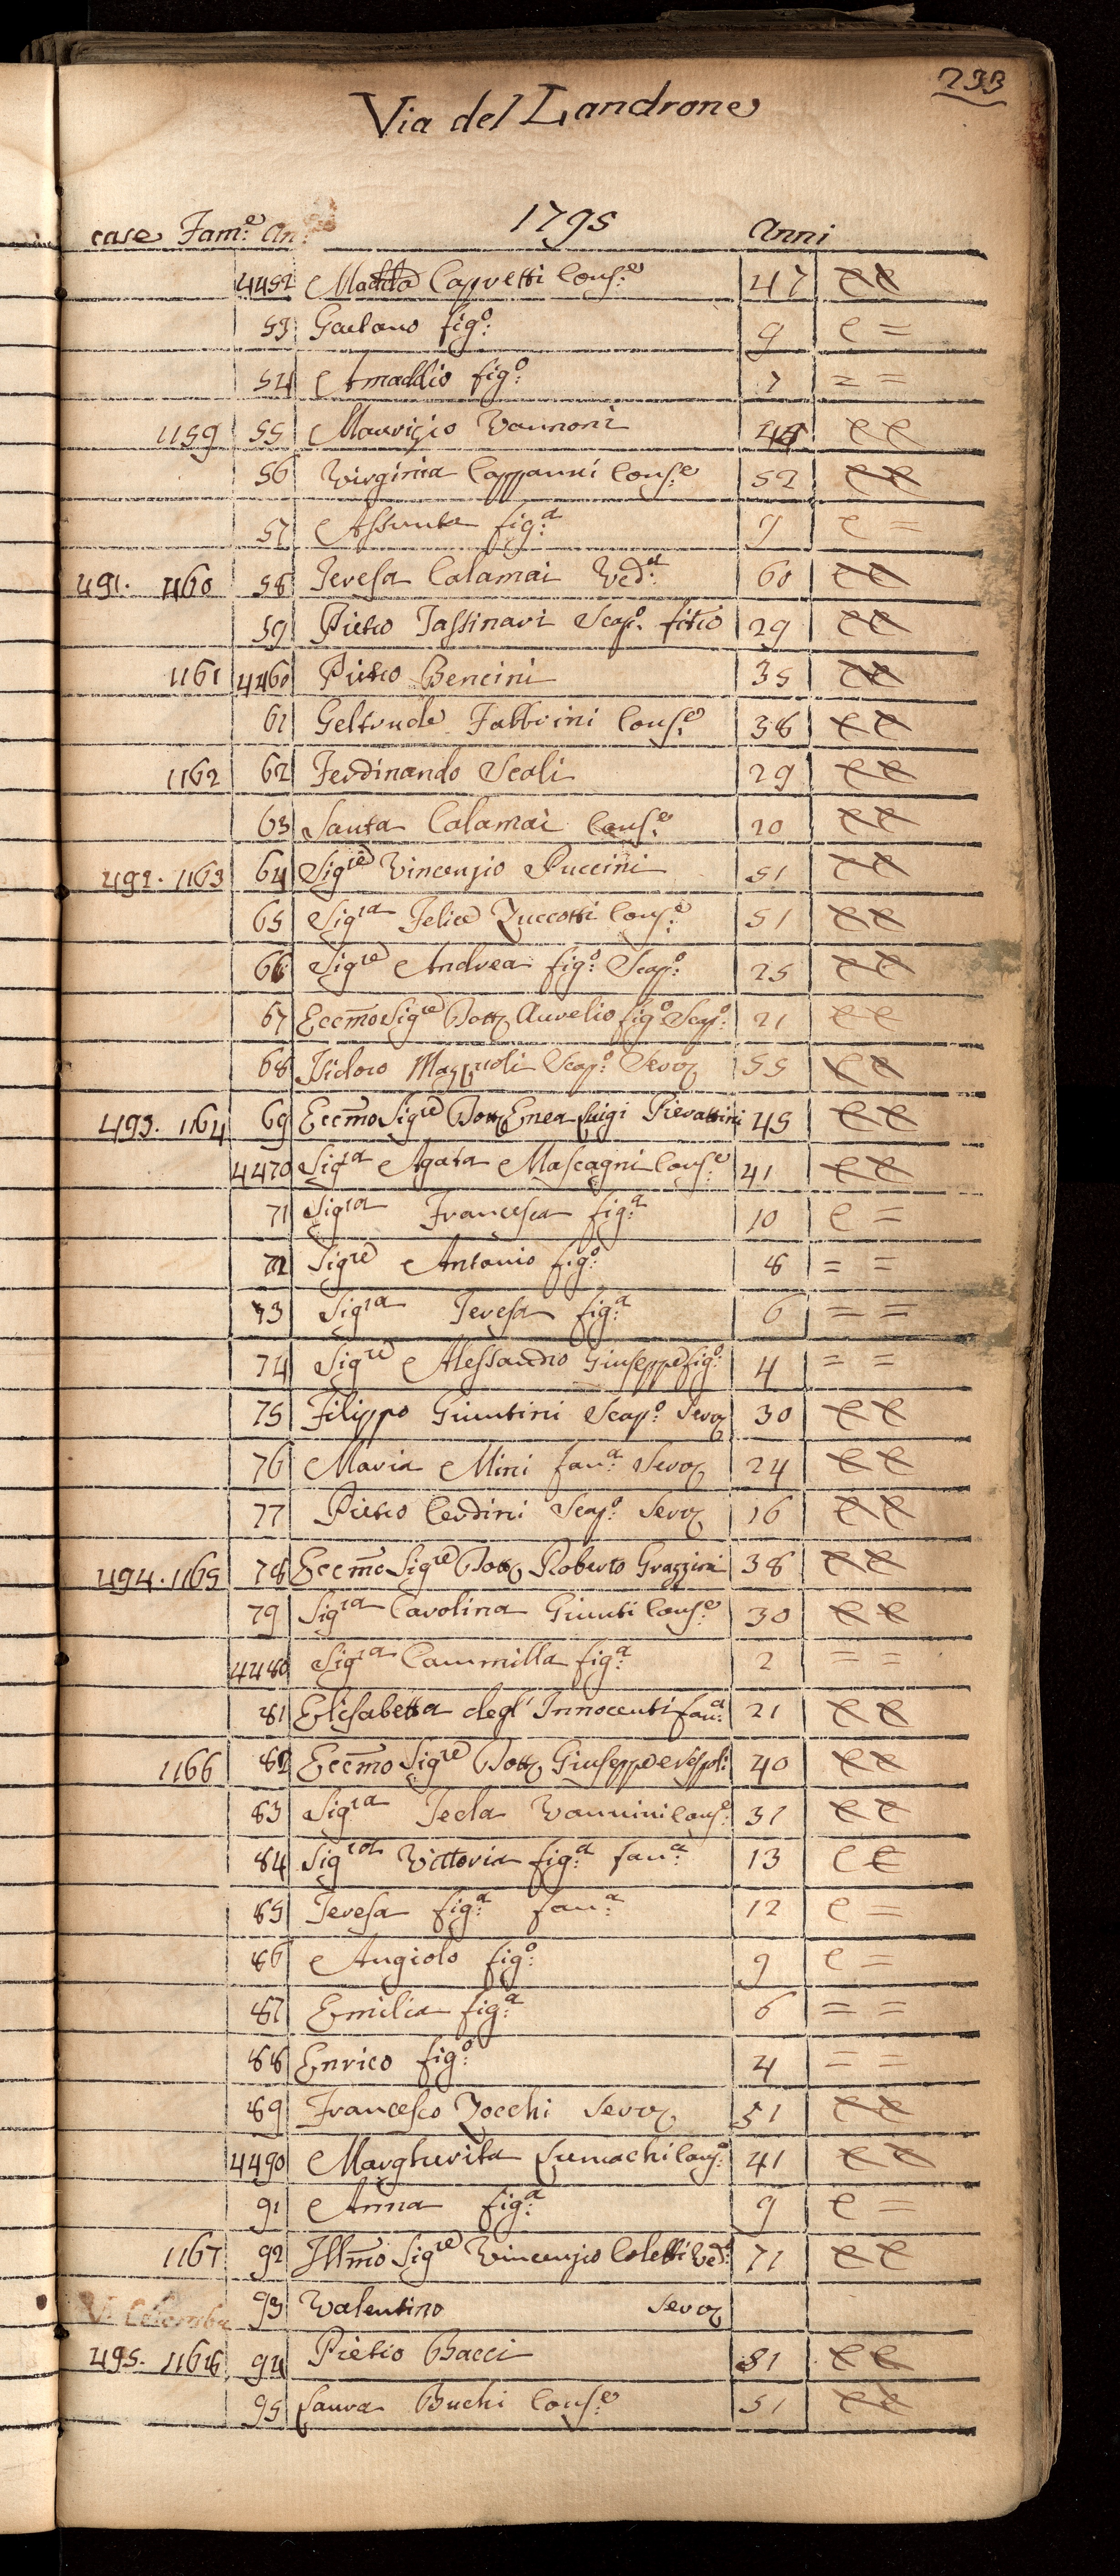 233
Via del Landrone
1795
case Fam:e An: Anni
4452 Madda Cappetti Cons:e 47 e e
53 Gaetano fig:o 9 e =
54 Amaddio fig:o 7 = =
1159 55 Maurizio Vannoni e e
56 Virginia Cappanni Cons:e 52 e e
57 Assunta fig:a 9 e =
491. 1160 58 Teresa Calamai Ved:a 60 e e
59 Pietro Tassinari Scap:o 29 e e
1161 4460 Pietro Bencini 35 e e
61 Geltrude Fabbrini Cons:e 38 e e
1162 62 Ferdinando Scoli 29 e e
63 Santa Calamai Cons:e 20 e e
492. 1163 64 Sigre Vincenzio Puccini 51 e e
65 Sigra Felice Zuccotti Cons:e 51 e e
66 Sigre Andrea fig:o Scap:o 25 e e
67 Eccmo Sigre Dott Aurelio fig:o Scap:o 21 e e
68 Isidoro Mazzuoli Scap:o Serv 55 e e
493. 1164 69 Eccmo Sigre Dott Enea Luigi Pierattini 45 e e
4470 Sigra Agata Mascagni Cons:e 41 e e
71 Sigra Francesca fig:a 10 e =
72 Sigre Antonio fig:o 8 = =
73 Sigra Teresa fig:a 6 = =
74 Sigre Alessandro Giuseppe fig:o 4 = =
75 Filippo Giuntini Scap:o Serv 30 e e
76 Maria Mini fan:a Serv 24 e e
77 Pietro Cerdini Scap:o Serv 16 e e
494. 1165 78 Eccmo Sigre Dott Roberto Grazzini 38 e e
79 Sigra Carolina Giunti Cons:e 30 e e
4480 Sigra Cammilla fig:a 2 = =
81 Elisabetta degl' Innocenti fan:a 21 e e
1166 82 Eccmo Sigre Dott Giuseppe Vespoli 40 e e
83 Sigra Tecla Vannini Cons:e 31 e e
84 Sigra Vittoria fig:a fan:a 13 e e
85 Teresa fig:a fan:a 12 e =
86 Angiolo fig:o 9 e =
87 Emilia fig:a 6 = =
88 Enrico fig:o 4 = =
89 Francesco Zocchi Serv 51 e e
4490 Margherita Lumachi Cons:e 41 e e
91 Anna fig:a 9 e =
1167 92 Illmo Sigre Vincenzio Coletti Ved:o 71 e e
93 Valentino Serv
495. 1168 94 Pietro Bacci 51 e e
95 Laura Buchi Cons:e 51 e e